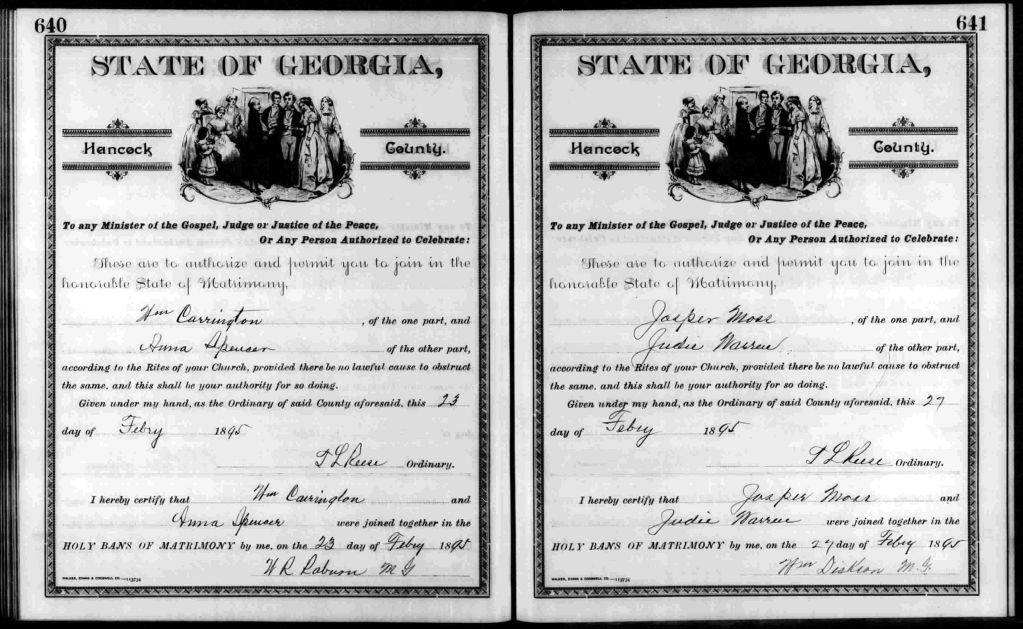 640
STATE OF GEORGIA,
Hancock County.
To any Minister of the Gospel, Judge or Justice of the Peace,
Or Any Person Authorized to Celebrate:
These are to authorize and permit you to join in the
honorable State of Matrimony,
Wm Carrington, of the one part, and
Anna Spencer of the other part,
according to the Rites of your Church, provided there be no lawful cause to obstruct
the same, and this shall be your authority for so doing.
Given under my hand, as the Ordinary of said County aforesaid, this 23
day of Febry 1895
T L Reese Ordinary.
I hereby certify that Wm Carrington and
Anna Spencer were joined together in the
HOLY BANS OF MATRIMONY by me, on the 23 day of Febry 1895
W R Rabun M G
WALKER, EVANS & COGSWELL CO.—113734
641
STATE OF GEORGIA,
Hancock County.
To any Minister of the Gospel, Judge or Justice of the Peace,
Or Any Person Authorized to Celebrate:
These are to authorize and permit you to join in the
honorable State of Matrimony,
Jasper Moss, of the one part, and
Judie Warren of the other part,
according to the Rites of your Church, provided there be no lawful cause to obstruct
the same, and this shall be your authority for so doing.
Given under my hand, as the Ordinary of said County aforesaid, this 27
day of Febry 1895
T L Reese Ordinary.
I hereby certify that Jasper Moss and
Judie Warren were joined together in the
HOLY BANS OF MATRIMONY by me, on the 27 day of Febry 1895
Wm M.G.
WALKER, EVANS & COGSWELL CO.—113734